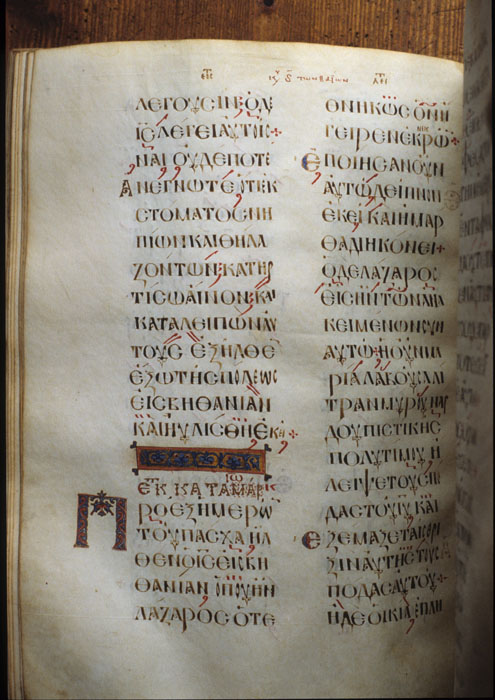 ΛΕΓΟΥϹΙΝ· Ο ΔΕ
ΙϹ ΛΕΓΕΙ ΑΥΤΟΙϹ
ΝΑΙ ΟΥΔΕΠΟΤΕ
ΑΝΕΓΝΩΤΕ ΟΤΙ ΕΚ
ϹΤΟΜΑΤΟϹ ΝΗ
ΠΙΩΝ ΚΑΙ ΘΗΛΑ
ΖΟΝΤΩΝ ΚΑΤΗΡ
ΤΙϹΩ ΑΙΝΟΝ· ΚΑΙ
ΚΑΤΑΛΕΙΠΩΝ ΑΥ
ΤΟΥϹ ΕΞΗΛΘΕ
ΕΞΩ ΤΗϹ ΠΟΛΕΩϹ
ΕΙϹ ΒΗΘΑΝΙΑΝ
ΚΑΙ ΗΥΛΙϹΘΗ ΕΚΕΙ
ΕΚ ΚΑΤΑ
ΠΡΟ ΕΞ ΗΜΕΡΩ
ΤΟΥ ΠΑϹΧΑ ΗΛ
ΘΕΝ Ο ΙϹ ΕΙϹ ΒΗ
ΘΑΝΙΑΝ ΟΠΟΥ ΗΝ
ΛΑΖΑΡΟϹ Ο ΤΕ
ΘΝΗΚΩϹ ΟΝ Η
ΓΕΙΡΕΝ ΕΚ ΝΕΚΡΩ
ΕΠΟΙΗϹΑΝ ΟΥΝ
ΑΥΤΩ ΔΕΙΠΝΟΝ
ΕΚΕΙ ΚΑΙ Η ΜΑΡ
ΘΑ ΔΙΗΚΟΝΕΙ·
Ο ΔΕ ΛΑΖΑΡΟϹ
ΕΙϹ ΗΝ ΤΩΝ ΑΝΑ
ΚΕΙΜΕΝΩΝ ϹΥΝ
ΑΥΤΩ· Η ΟΥΝ ΜΑ
ΡΙΑ ΛΑΒΟΥϹΑ ΛΙ
ΤΡΑΝ ΜΥΡΟΥ ΝΑΡ
ΔΟΥ ΠΙϹΤΙΚΗϹ
ΠΟΛΥΤΙΜΟΥ Η
ΛΕΙΨΕ ΤΟΥϹ ΠΟ
ΔΑϹ ΤΟΥ ΙΥ ΚΑΙ
ΕΞΕΜΑΞΕ ΤΑΙϹ ΘΡΙ
ΞΙΝ ΑΥΤΗϹ ΤΟΥϹ
ΠΟΔΑϹ ΑΥΤΟΥ·
Η ΔΕ ΟΙΚΙΑ ΕΠΛΗ